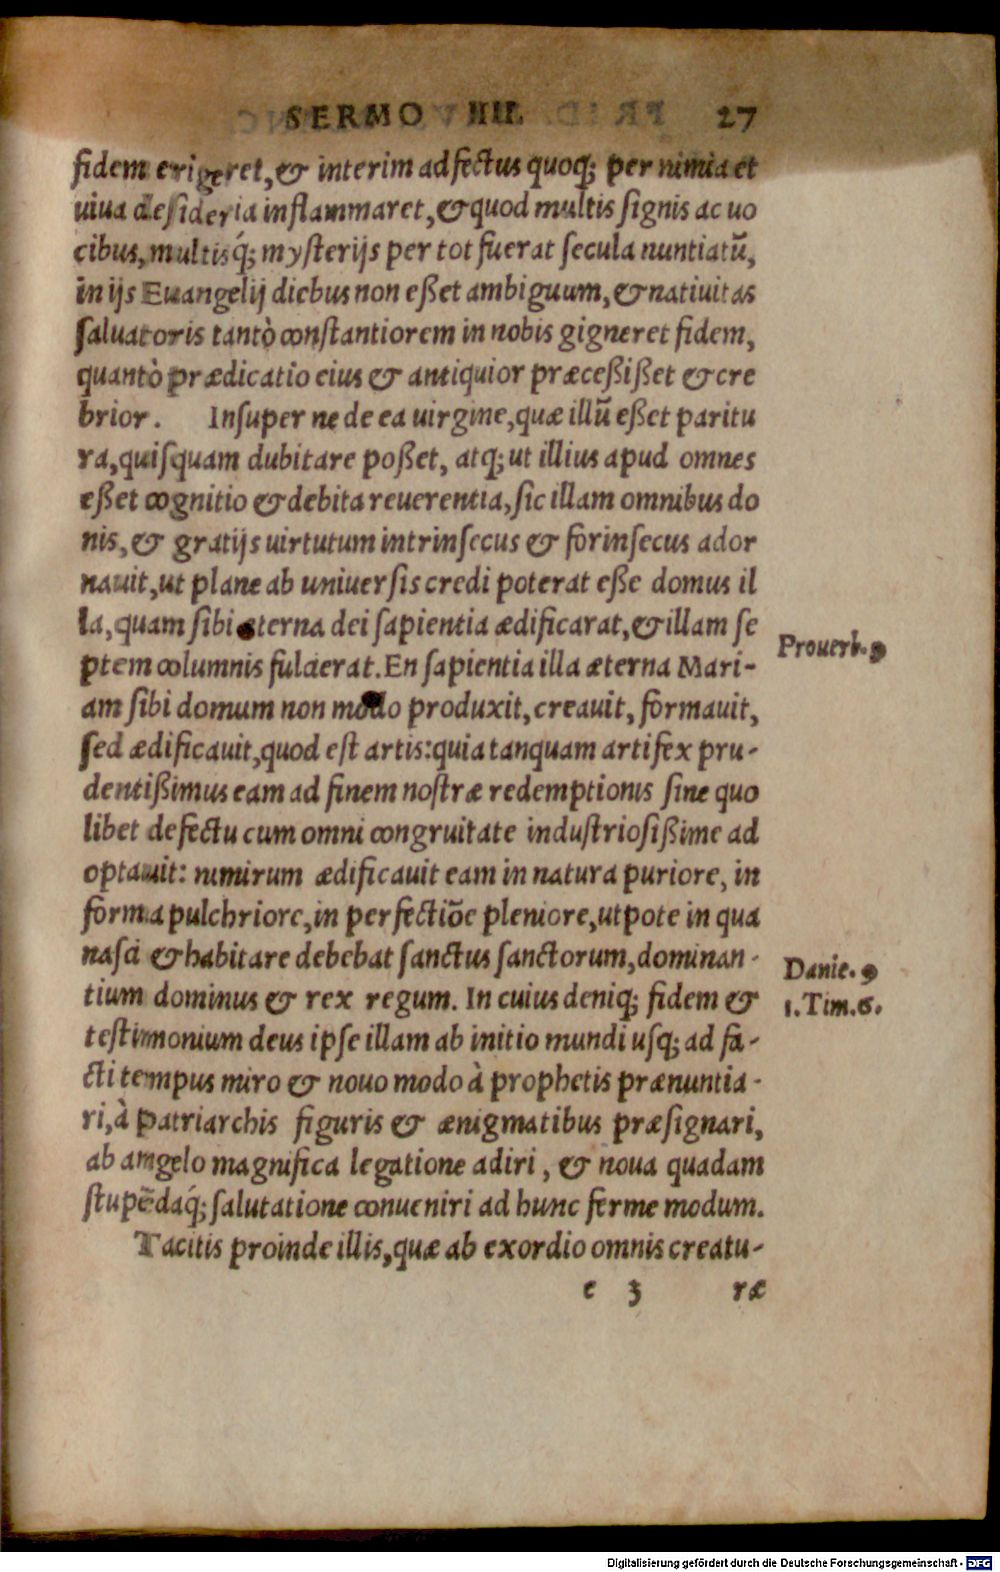 SERMO IIII. 27
fidem erigeret, & interim adfectus quoq; per nimia et
uiua desideria inflammaret, & quod multis signis ac uo
cibus, multisq́; mysterijs per tot fuerat secula nuntiatũ,
in ijs Euangelij diebus non eßet ambiguum, & natiuitas
saluatoris tantò constantiorem in nobis gigneret fidem,
quantò prædicatio eius & antiquior præceßißet & cre
brior. Insuper ne de ea uirgine, quæ illũ eßet paritu
ra, quisquam dubitare poßet, atq; ut illius apud omnes
eßet cognitio & debita reuerentia, sic illam omnibus do
nis, & gratijs uirtutum intrinsecus & forinsecus ador
nauit, ut plane ab uniuersis credi poterat eße domus il
la, quam sibi æterna dei sapientia ædificarat, & illam se
ptem columnis fulcierat. En sapientia illa æterna Mari-
am sibi domum non modo produxit, creauit, formauit,
sed ædificauit, quod est artis: quia tanquam artifex pru-
dentißimus eam ad finem nostræ redemptionis sine quo
libet defectu cum omni congruitate industriosißime ad
optauit: nimirum ædificauit eam in natura puriore, in
forma pulchriore, in perfectiõe pleniore, utpote in qua
nasci & habitare debebat sanctus sanctorum, dominan-
tium dominus & rex regum. In cuius deniq; fidem &
testimonium deus ipse illam ab initio mundi usq; ad fa-
cti tempus miro & nouo modo à prophetis prænuntia-
ri, à patriarchis figuris & ænigmatibus præsignari,
ab angelo magnifica legatione adiri, & noua quadam
stupẽdaq́; salutatione conueniri ad hunc ferme modum.
Tacitis proinde illis, quæ ab exordio omnis creatu-
e 3 ræ
Prouerb. 9
Danie. 9
1. Tim. 6.
Digitalisierung gefördert durch die Deutsche Forschungsgemeinschaft - DFG